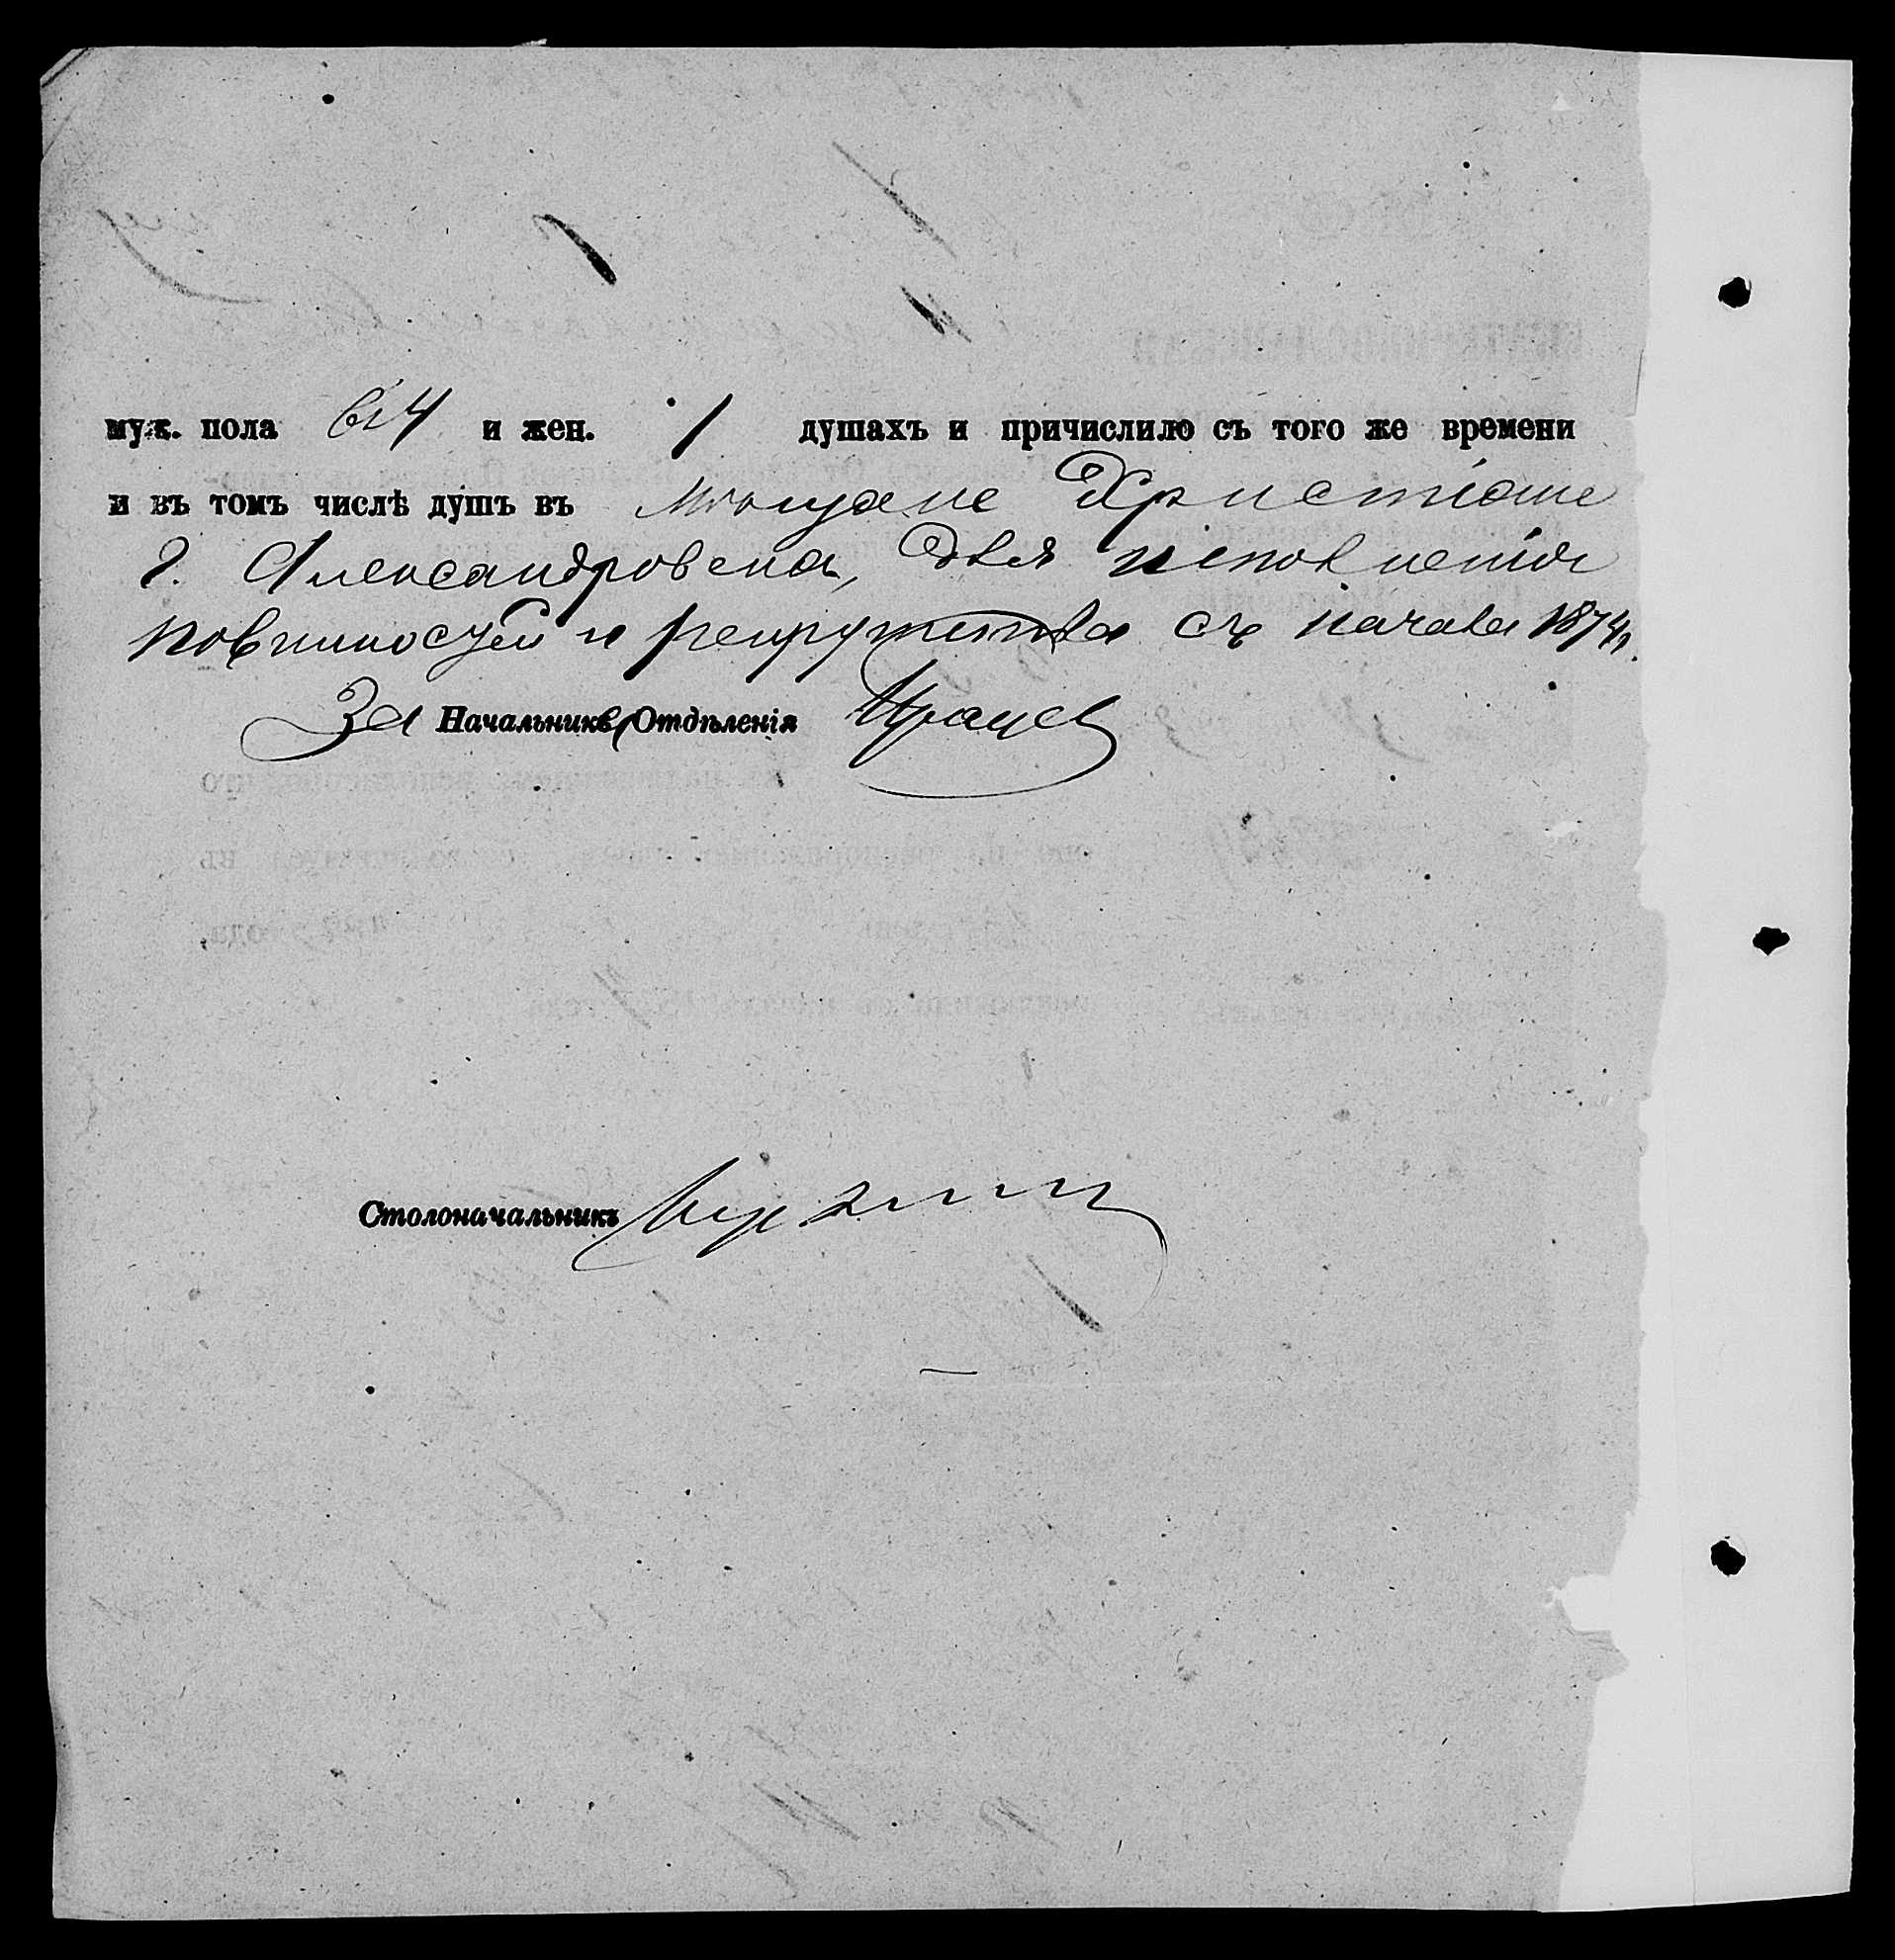 муж. пола въ 4 и жен. 1 душахъ и причислило съ того же времени
и въ томъ числѣ душъ въ Мѣщане Христіане
г. Александровска, для исполненія
повинностей и рекрутства съ начала 1874 г.
За Начальника Отдѣленія
Столоначальникъ